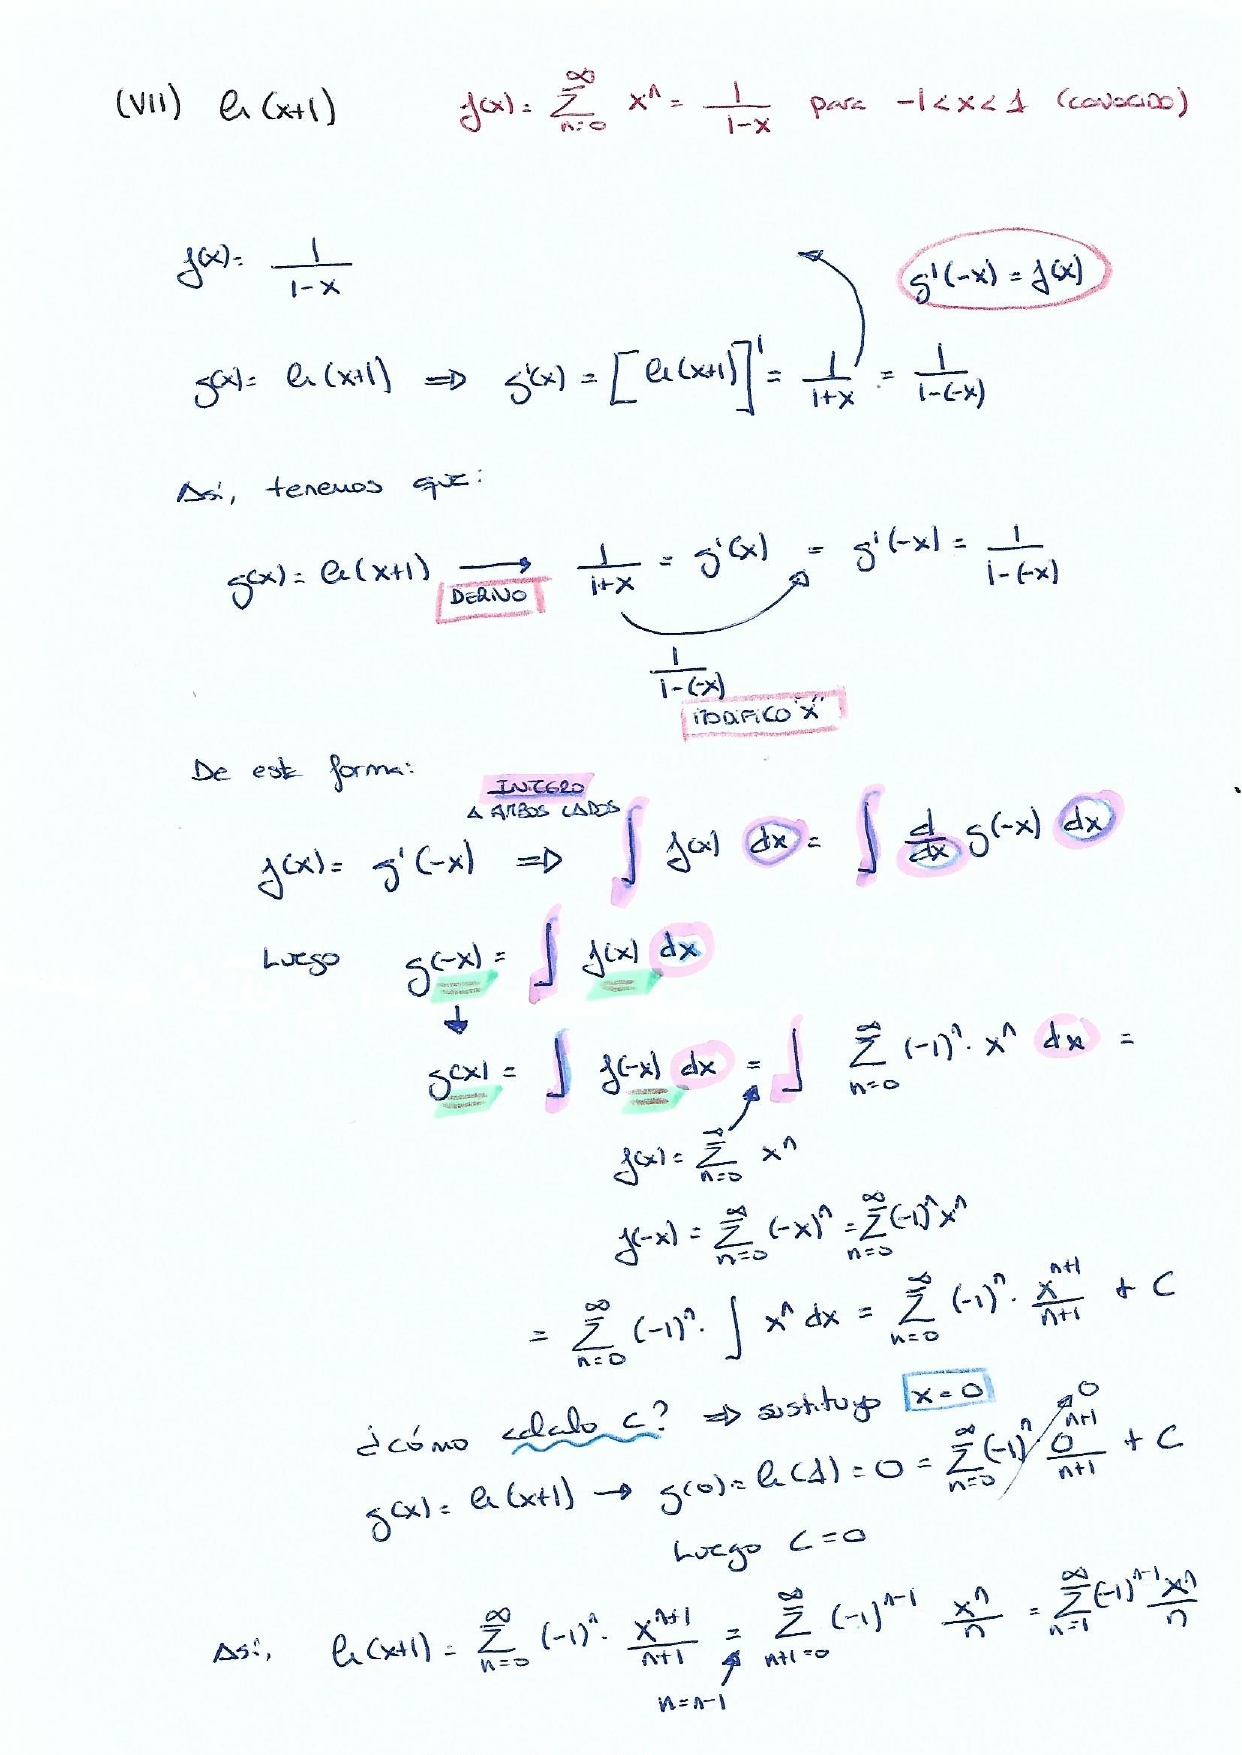 (VII) ln(x+1) f(x) = ∑_{n=0}^{∞} x^n = 1/(1-x) para -1<x<1 (conocido)
f(x) = 1/(1-x)
g'(-x) = f(x)
g(x) = ln(x+1) ⇒ g'(x) = [ln(x+1)]' = 1/(1+x) = 1/(1-(-x))
Así, tenemos que:
g(x) = ln(x+1) → 1/(1+x) = g'(x) = g'(-x) = 1/(1-(-x))
DERIVO
1/(1-(-x))
MODIFICO "X"
De esta forma:
INTEGRO
A AMBOS LADOS
f(x) = g'(-x) ⇒ ∫ f(x) dx = ∫ d/dx g(-x) dx
Luego g(-x) = ∫ f(x) dx
↓
g(x) = ∫ f(-x) dx = ∫ ∑_{n=0}^{∞} (-1)^n · x^n dx =
f(x) = ∑_{n=0}^{∞} x^n
f(-x) = ∑_{n=0}^{∞} (-x)^n = ∑_{n=0}^{∞} (-1)^n x^n
= ∑_{n=0}^{∞} (-1)^n · ∫ x^n dx = ∑_{n=0}^{∞} (-1)^n · x^{n+1}/(n+1) + C
¿cómo calculo C? ⇒ sustituyo x=0
g(x) = ln(x+1) → g(0) = ln(1) = 0 = ∑_{n=0}^{∞} (-1)^n 0^{n+1}/(n+1) → 0 + C
Luego C=0
Así, ln(x+1) = ∑_{n=0}^{∞} (-1)^n · x^{n+1}/(n+1) = ∑_{n+1=0}^{∞} (-1)^{n-1} x^n/n = ∑_{n=1}^{∞} (-1)^{n-1} x^n/n
n=n-1